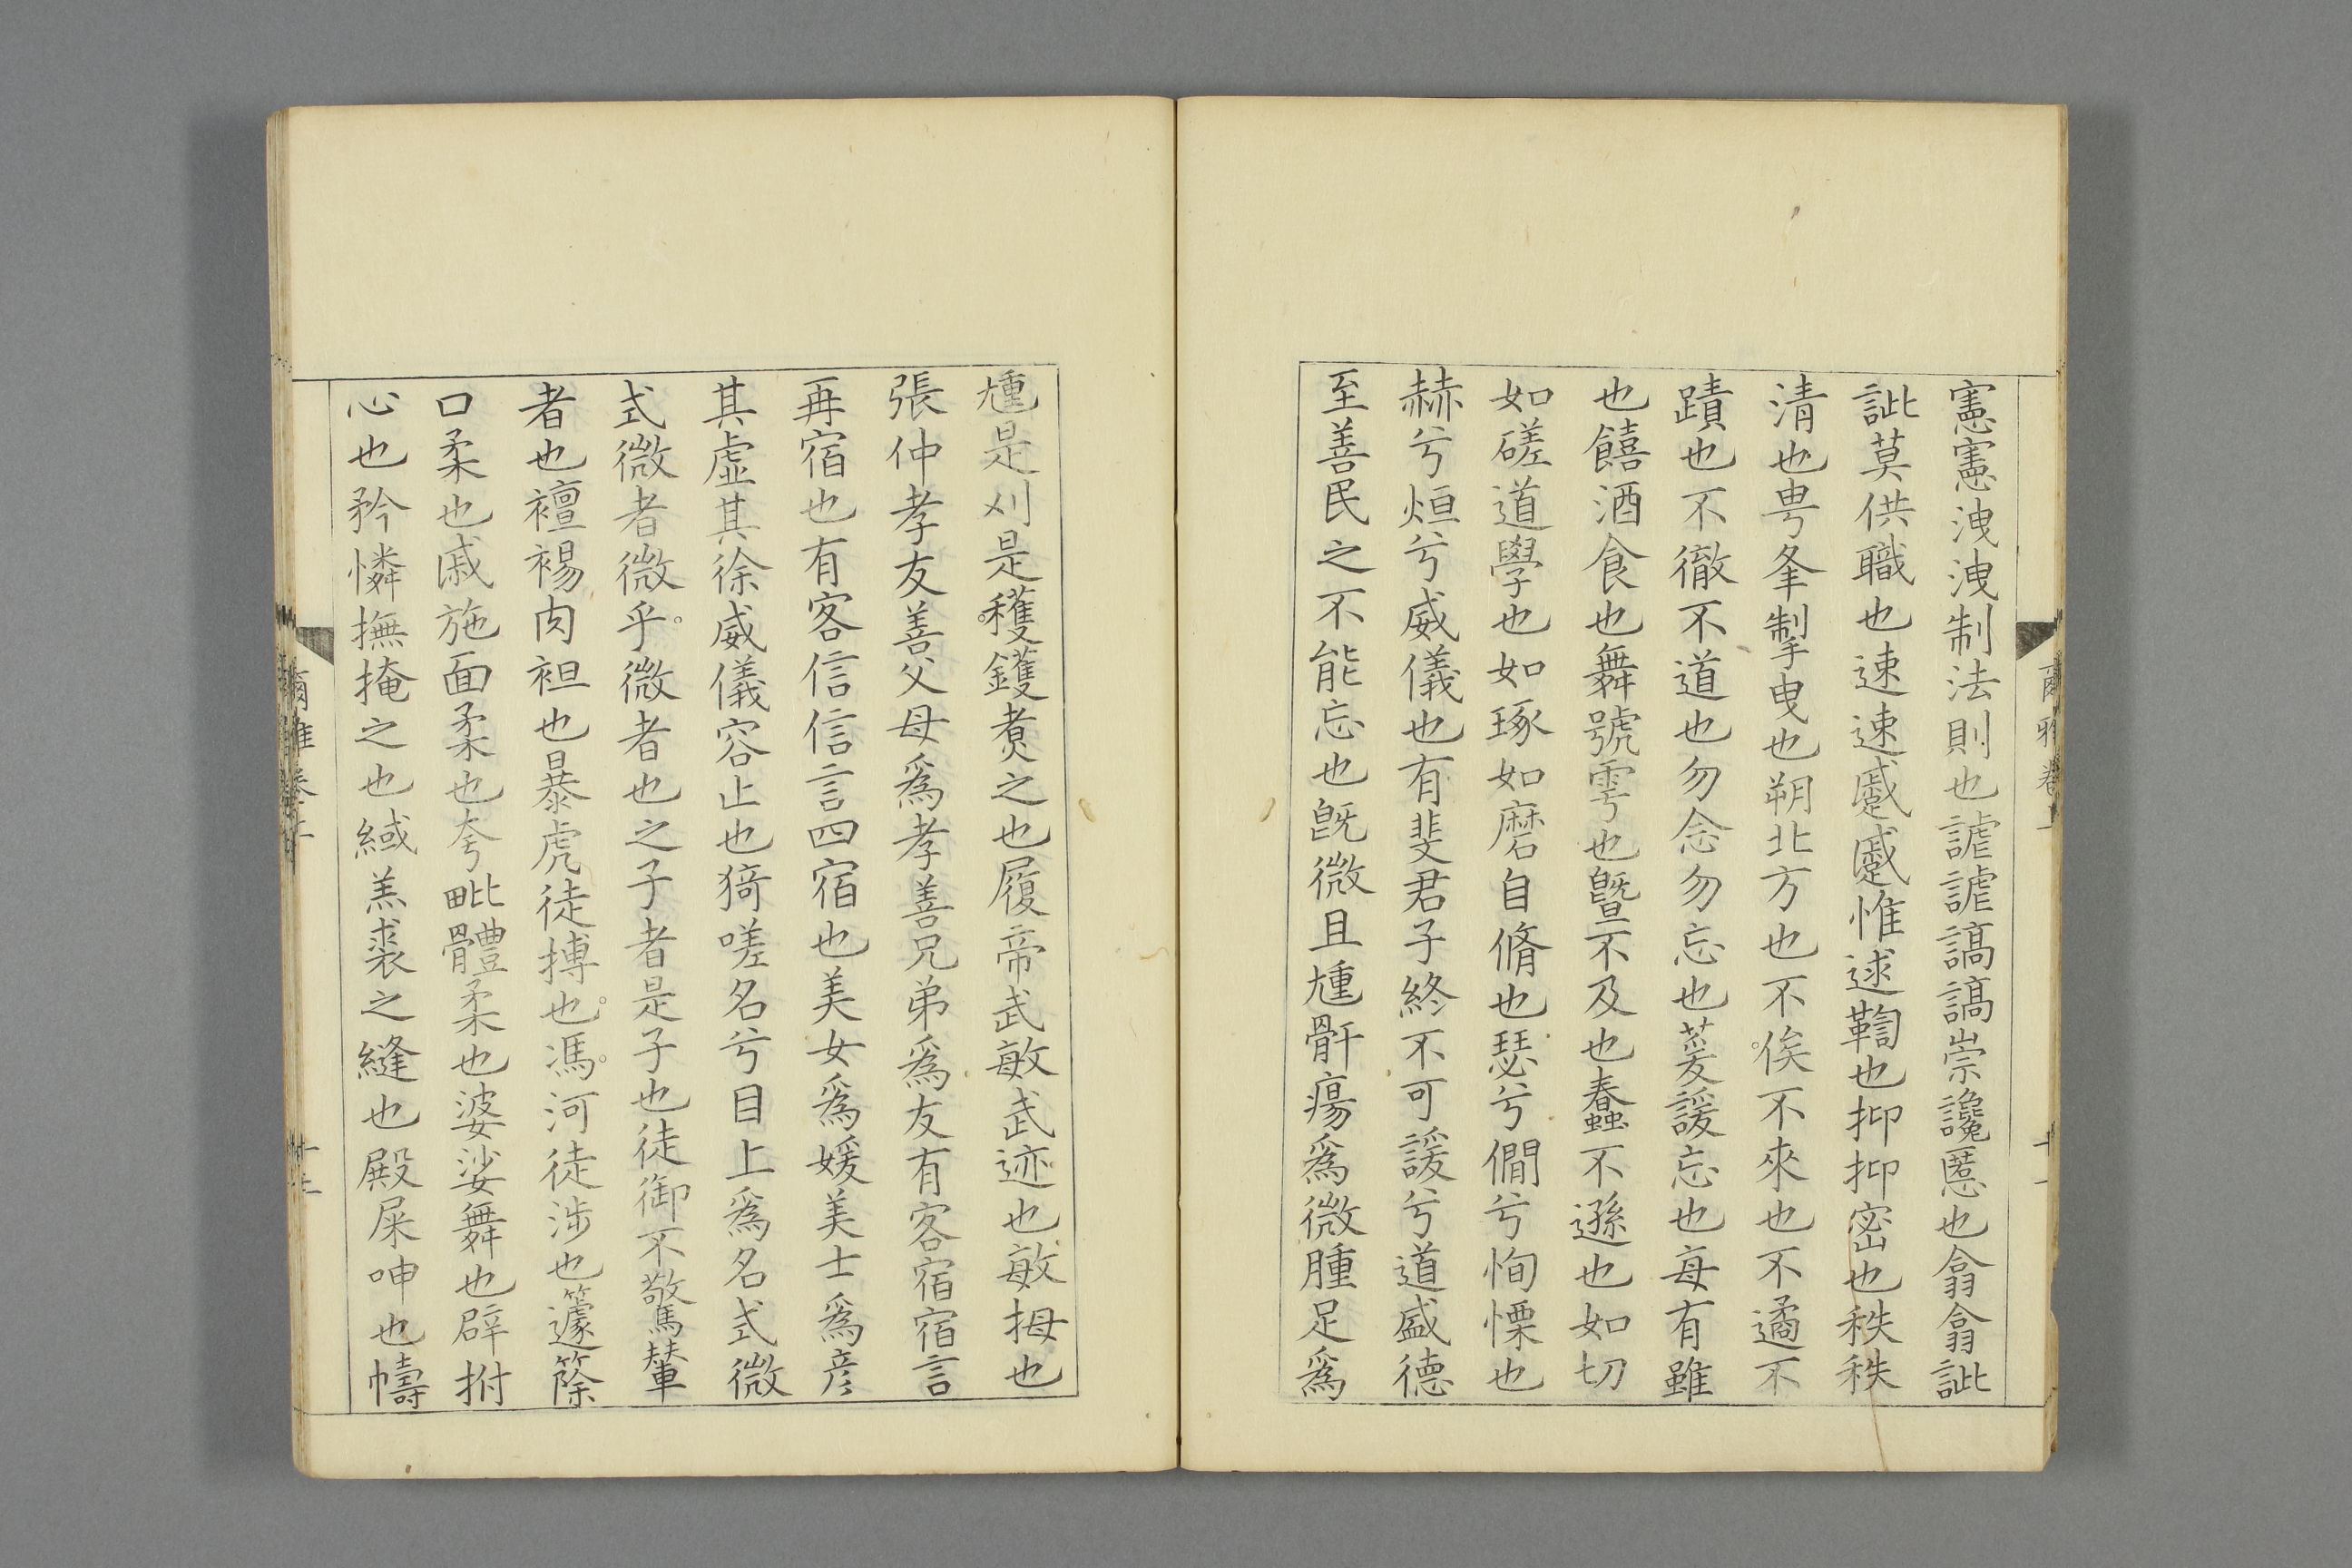 憲憲洩洩制法則也謔謔謞謞崇讒慝也翕翕訿
訿莫供職也速速蹙蹙惟逑鞫也抑抑密也秩秩
清也甹夆掣曳也朔北方也不俟不來也不遹不
蹟也不徹不道也勿念勿忘也萲諼忘也每有雖
也饎酒食也舞號雩也暨不及也蠢不遜也如切
如磋道學也如琢如磨自脩也瑟兮僩兮恂慄也
赫兮烜兮威儀也有斐君子終不可諼兮道盛德
至善民之不能忘也旣微且尰骭瘍爲微腫足爲
尰是刈是穫鑊煑之也履帝武敏武迹也敏拇也
張仲孝友善父母爲孝善兄弟爲友有客宿宿言
再宿也有客信信言四宿也美女爲媛美士爲彦
其虛其徐威儀容止也猗嗟名兮目上爲名式微
式微者微乎微者也之子者是子也徒御不驚輦
者也襢裼肉袒也暴虎徒搏也馮河徒涉也籧篨
口柔也戚施面柔也夸毗體柔也婆娑舞也辟拊
心也矜憐撫掩之也緎羔裘之縫也殿屎呻也幬
爾雅卷上